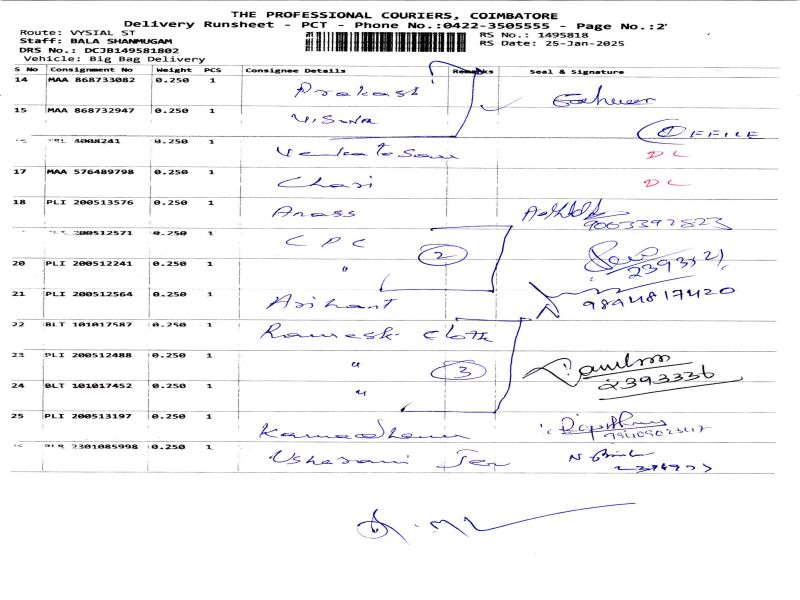 THE PROFESSIONAL COURIERS, COIMBATORE
Delivery Runsheet - PCT - Phone No.:0422-3505555 - Page No.:2
Route: VYSIAL ST
RS No.: 1495818
Staff: BALA SHANMUGAM
RS Date: 25-Jan-2025
DRS No.: DCJB149581802
Vehicle: Big Bag Delivery
S No Consignment No Weight PCS Consignee Details Remarks Seal & Signature
14 MAA 868733082 0.250 1 Prakash
15 MAA 868732947 0.250 1 Viswa
OFFICE
4008241 0.250 1 Venkatesan DL
17 MAA 576489798 0.250 1 Chari DL
18 PLI 200513576 0.250 1 Anass
9003392823
200512571 0.250 1 CPC 2
20 PLI 200512241 0.250 1 "
21 PLI 200512564 0.250 1 Arihant 9894817420
22 BLT 101017587 0.250 1 Ramesh Cloth
23 PLI 200512488 0.250 1 " 3
24 BLT 101017452 0.250 1 " 2393336
25 PLI 200513197 0.250 1
2301085998 0.250 1 Usharani